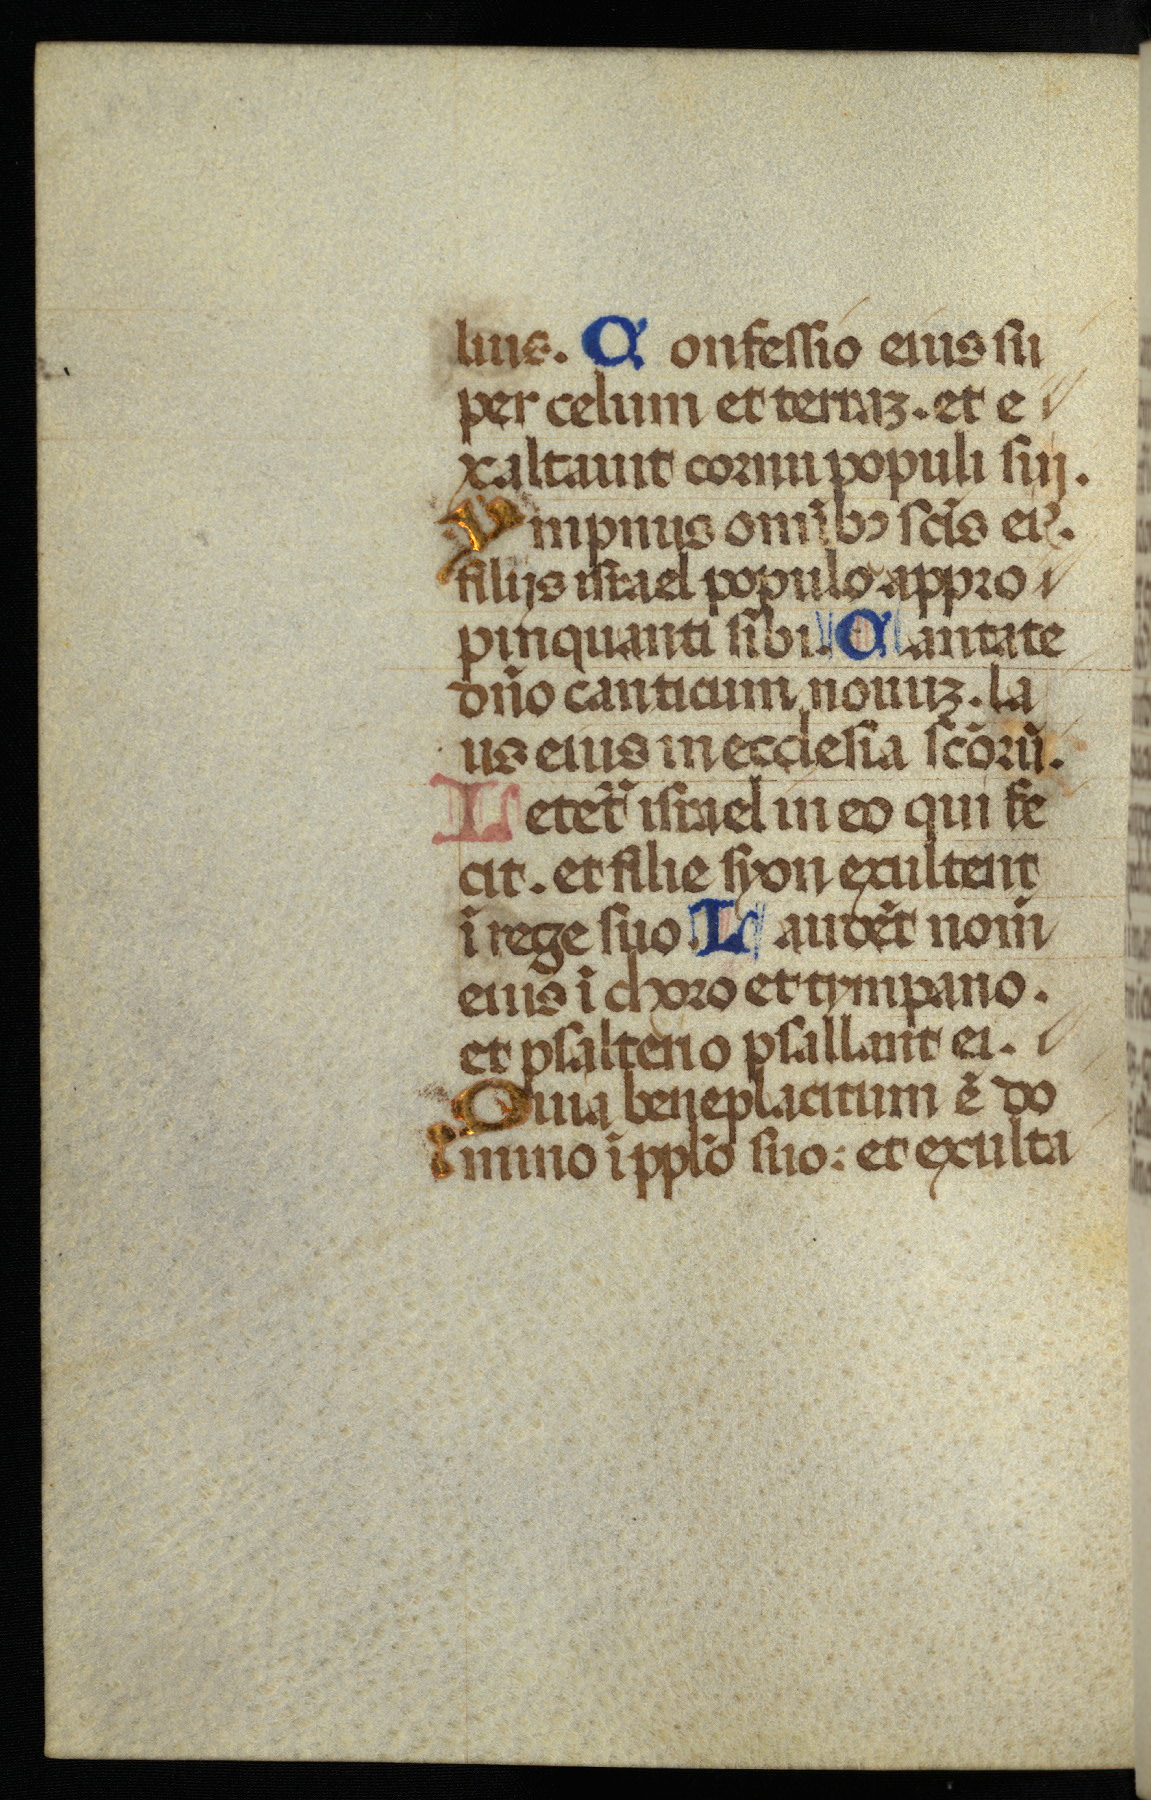 lius. Confessio eius su
per celum et terraz. et e
xaltauit cornu populi suj.
Ympnus omībꝫ scīs eiꝰ.
filijs israel populo appro
pinquanti sibi. Cantate
dn̄o canticum nouuz. la
us eius in ecclesia sc̄orū.
Letet᷑ israel in eo qui fe
cit. et filie syon exultent
ī rege suo. Laudēt nom̄
eius ī choro et tympano.
et psalterio psallant ei.
Quia beneplacitum ē do
mino ī ppl̄o suo: et exulta